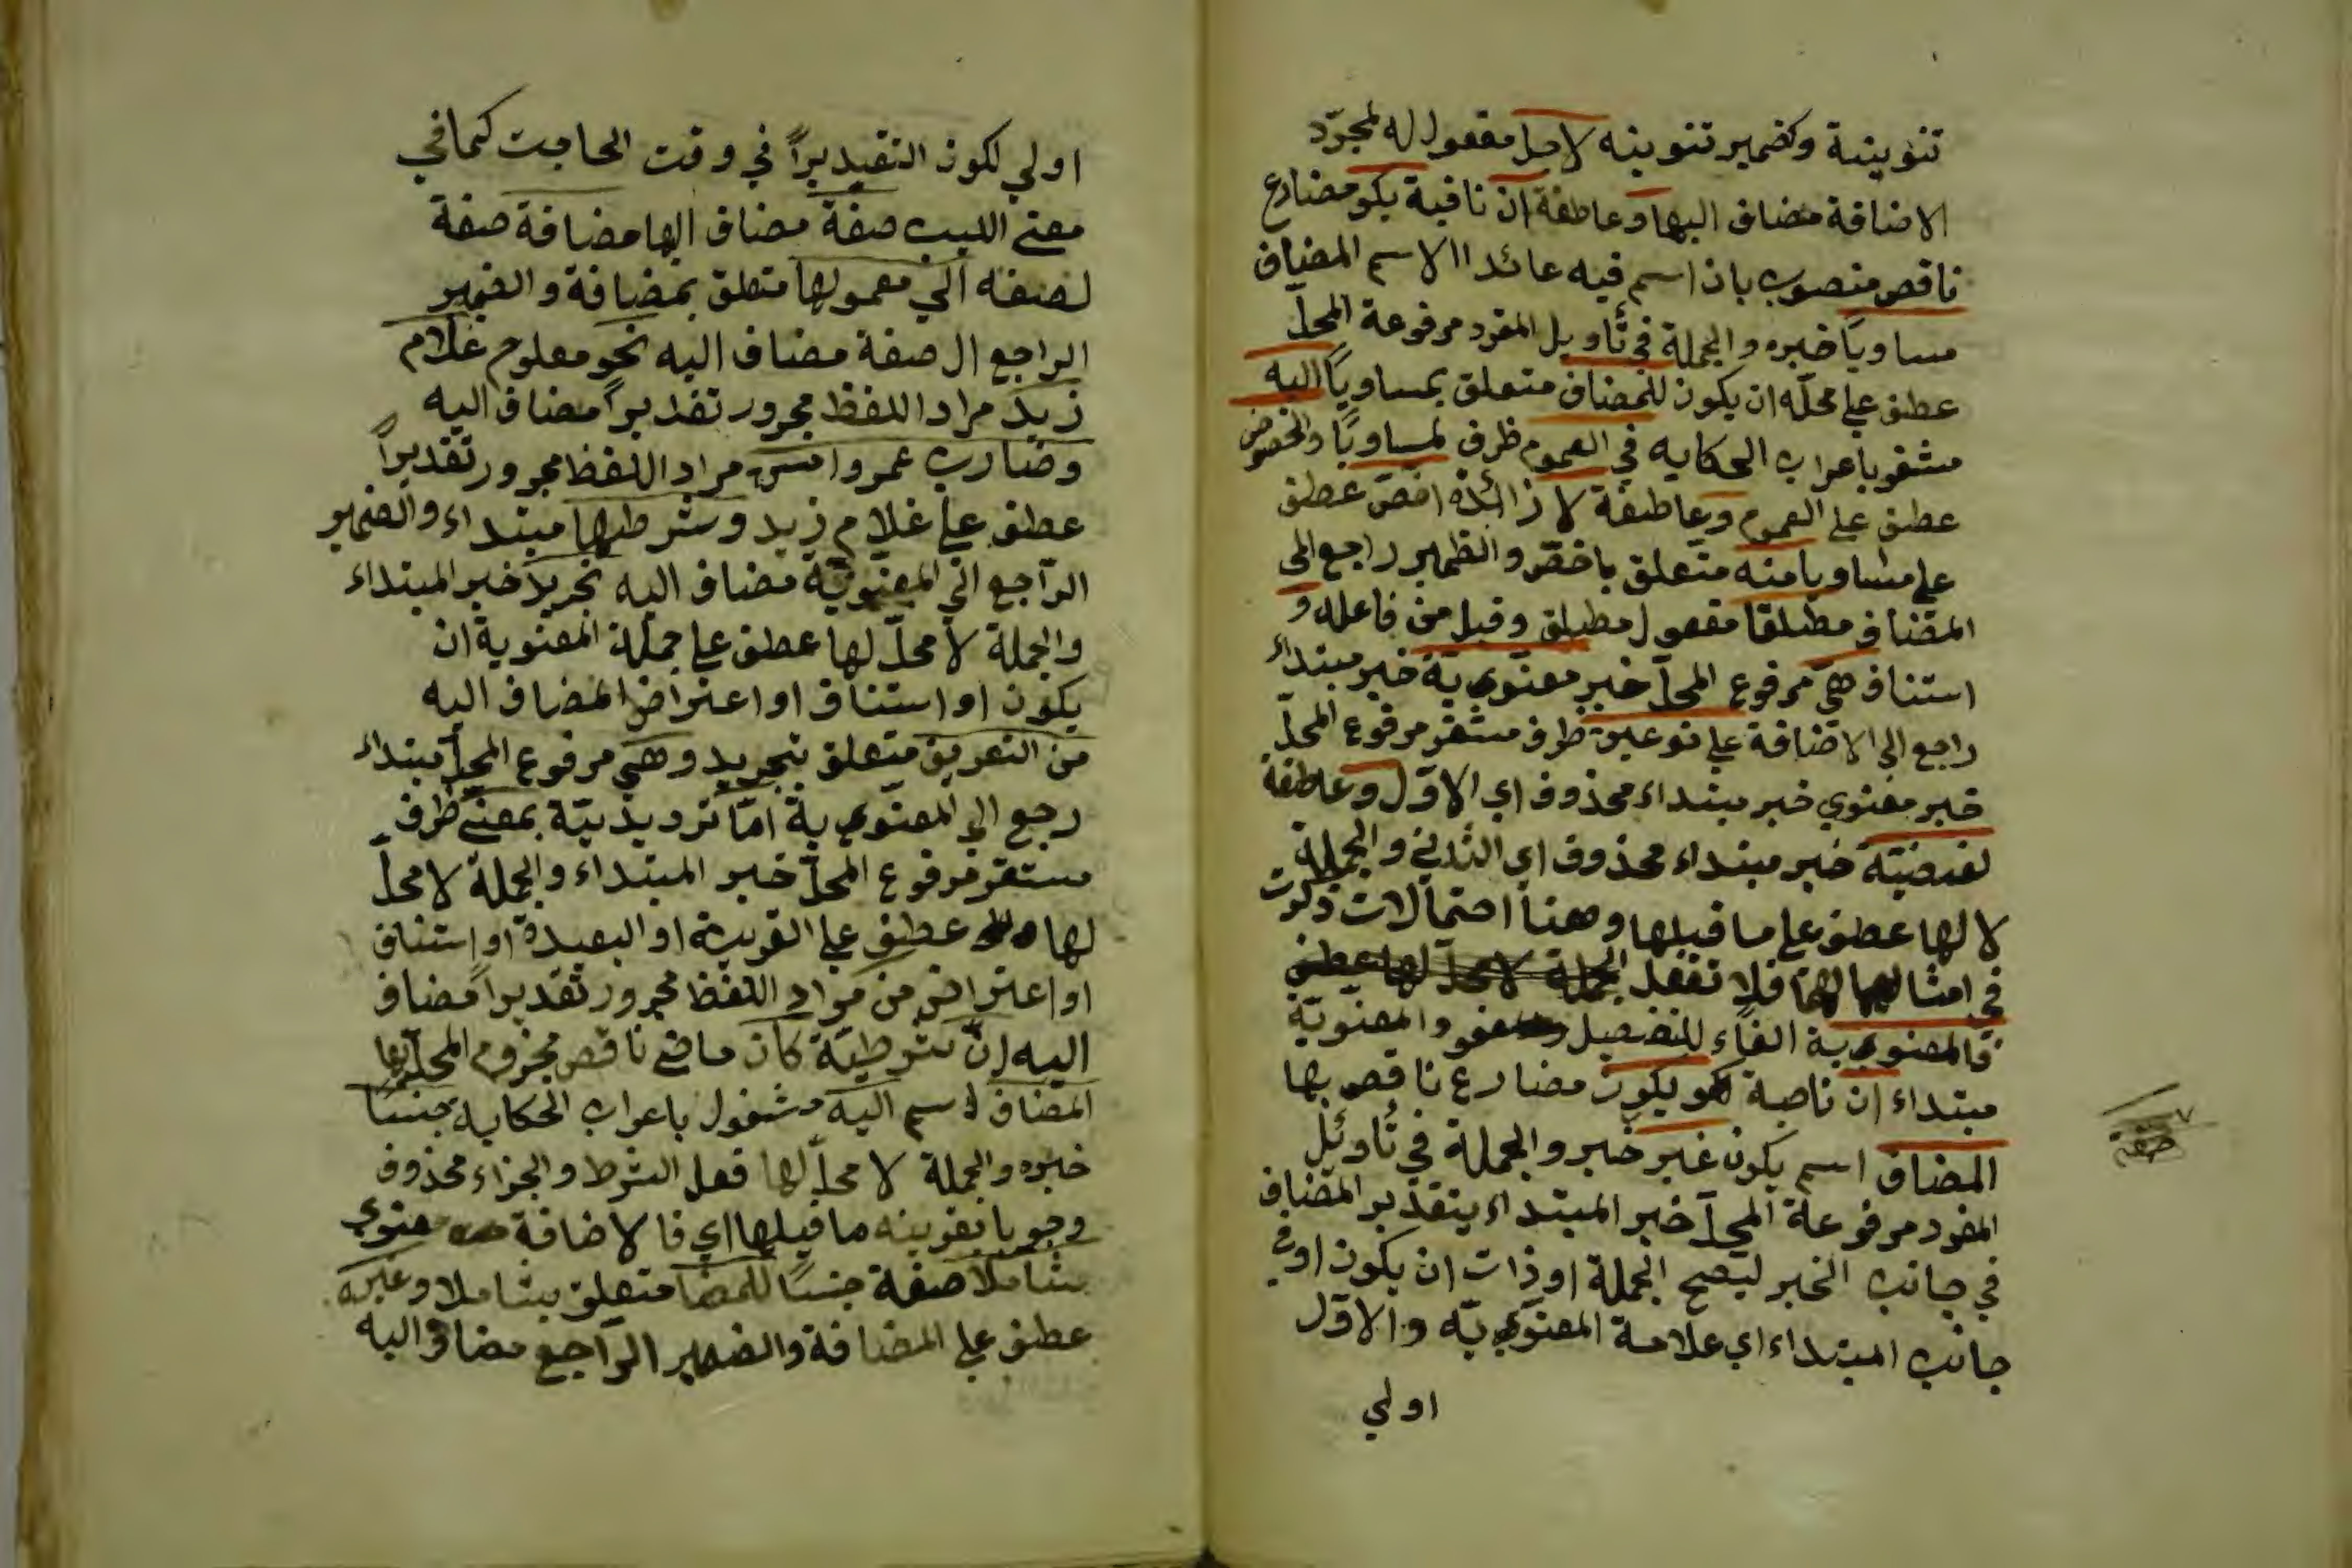 تنوينية وكضمير تنوينه لاجل مفعول له لمجرّد
الاضافة مضاف اليها و عاطفة ان نافية يكو مضارع
ناقص منصوب بان اسم فيه عائد الا الاسم المضاف
مساوياً خبره والجملة في تأويل المفرد مرفوعة المحلّ
عطف علي محلّه ان يكون للمضاف متعلق بمساوياً اليه
مشغو باعراب الحكايه في العموم ظرف لمساوياً والخصوص
عطف علي العموم وعاطفة لا زائدة اخصّ عطف
علي مساويا منه متعلق باخصّ والظمير راجع الي
المضاف مطلقا مفعول مطلق وقبل من فاعله و
استناف هي مرفوع المحلّ خبر معنوي يّة خبر مبتداء
راجع الي الاضافة علي نوعين ظرف مستقر مرفوع المحلّ
خبر معنوي خبر مبتداء محذوف اي الاوّل و عاطفة
لفضيّة خبر مبتداء محذوف اي الثاني والجملة
لا لها عطف علي ما قبلها وهنا احتمالات ذكرت
في امثالهما فلا تغفل الجملة لا محلّ لها عطف
فالمعنوي ية الفاء للتفصيل والمعنويّة
مبتداء ان ناصبة يكون مضارع ناقص بها
المضاف اسم يكون غير خبر والجملة في تأويل
المفرد مرفوعة المحلّ خبر المبتداء بتقدير المضاف
في جانب الخبر ليصح الجملة او ذات ان يكون او في
جانب المبتداء اي علامة المعنوي يّة والاوّل
اولي
صفة
اولي لكون التقيديراً في وقت الحاجت كما في
مغني اللبيب صفة مضاف اليها مضافة صفة
لصفة الي معمولها متعلق بمضافة والضمير
الراجع ال صفة مضاف اليه نحو معلوم غلام
زيد مراد اللفظ مجرور تقديراً مضاف اليه
وضارب عمرو امس مراد اللفظ مجرور تقديراً
عطف علي غلام زيد وشرطها مبتداء والضمير
الرّاجع الي المعنويّة مضاف اليه تجريد خبر المبتداء
والجملة لا محلّ لها عطف علي جملة المعنوية ان
يكون او استناف او اعتراض المضاف اليه
من التعريف متعلق بتجريد وهي مرفوع المحلّ مبتداء
رجع الي المعنوي ية امّا ترديديّة بمعني ظرف
مستقر مرفوع المحلّ خبر المبتداء والجملة لا محلّ
لها عطف علي القريبة او البعيدة او استناف
او اعتراض من مراد اللفظ مجرور تقديراً مضاف
اليه ان شرطيّة كان ماضي ناقص مجزوم المحلّ بها
المضاف اسم اليه مشغول باعراب الحكايه جنساً
خبره والجملة لا محلّ لها فعل الشرط والجزاء محذوف
وجوبا بقرينه ما قبلها اي فا لاضافة معنوي
شاملا صفة جنساً للمضا متعلق بشاملا وغيره
عطف علي المضافة والضمير الرّاجع مضاف اليه